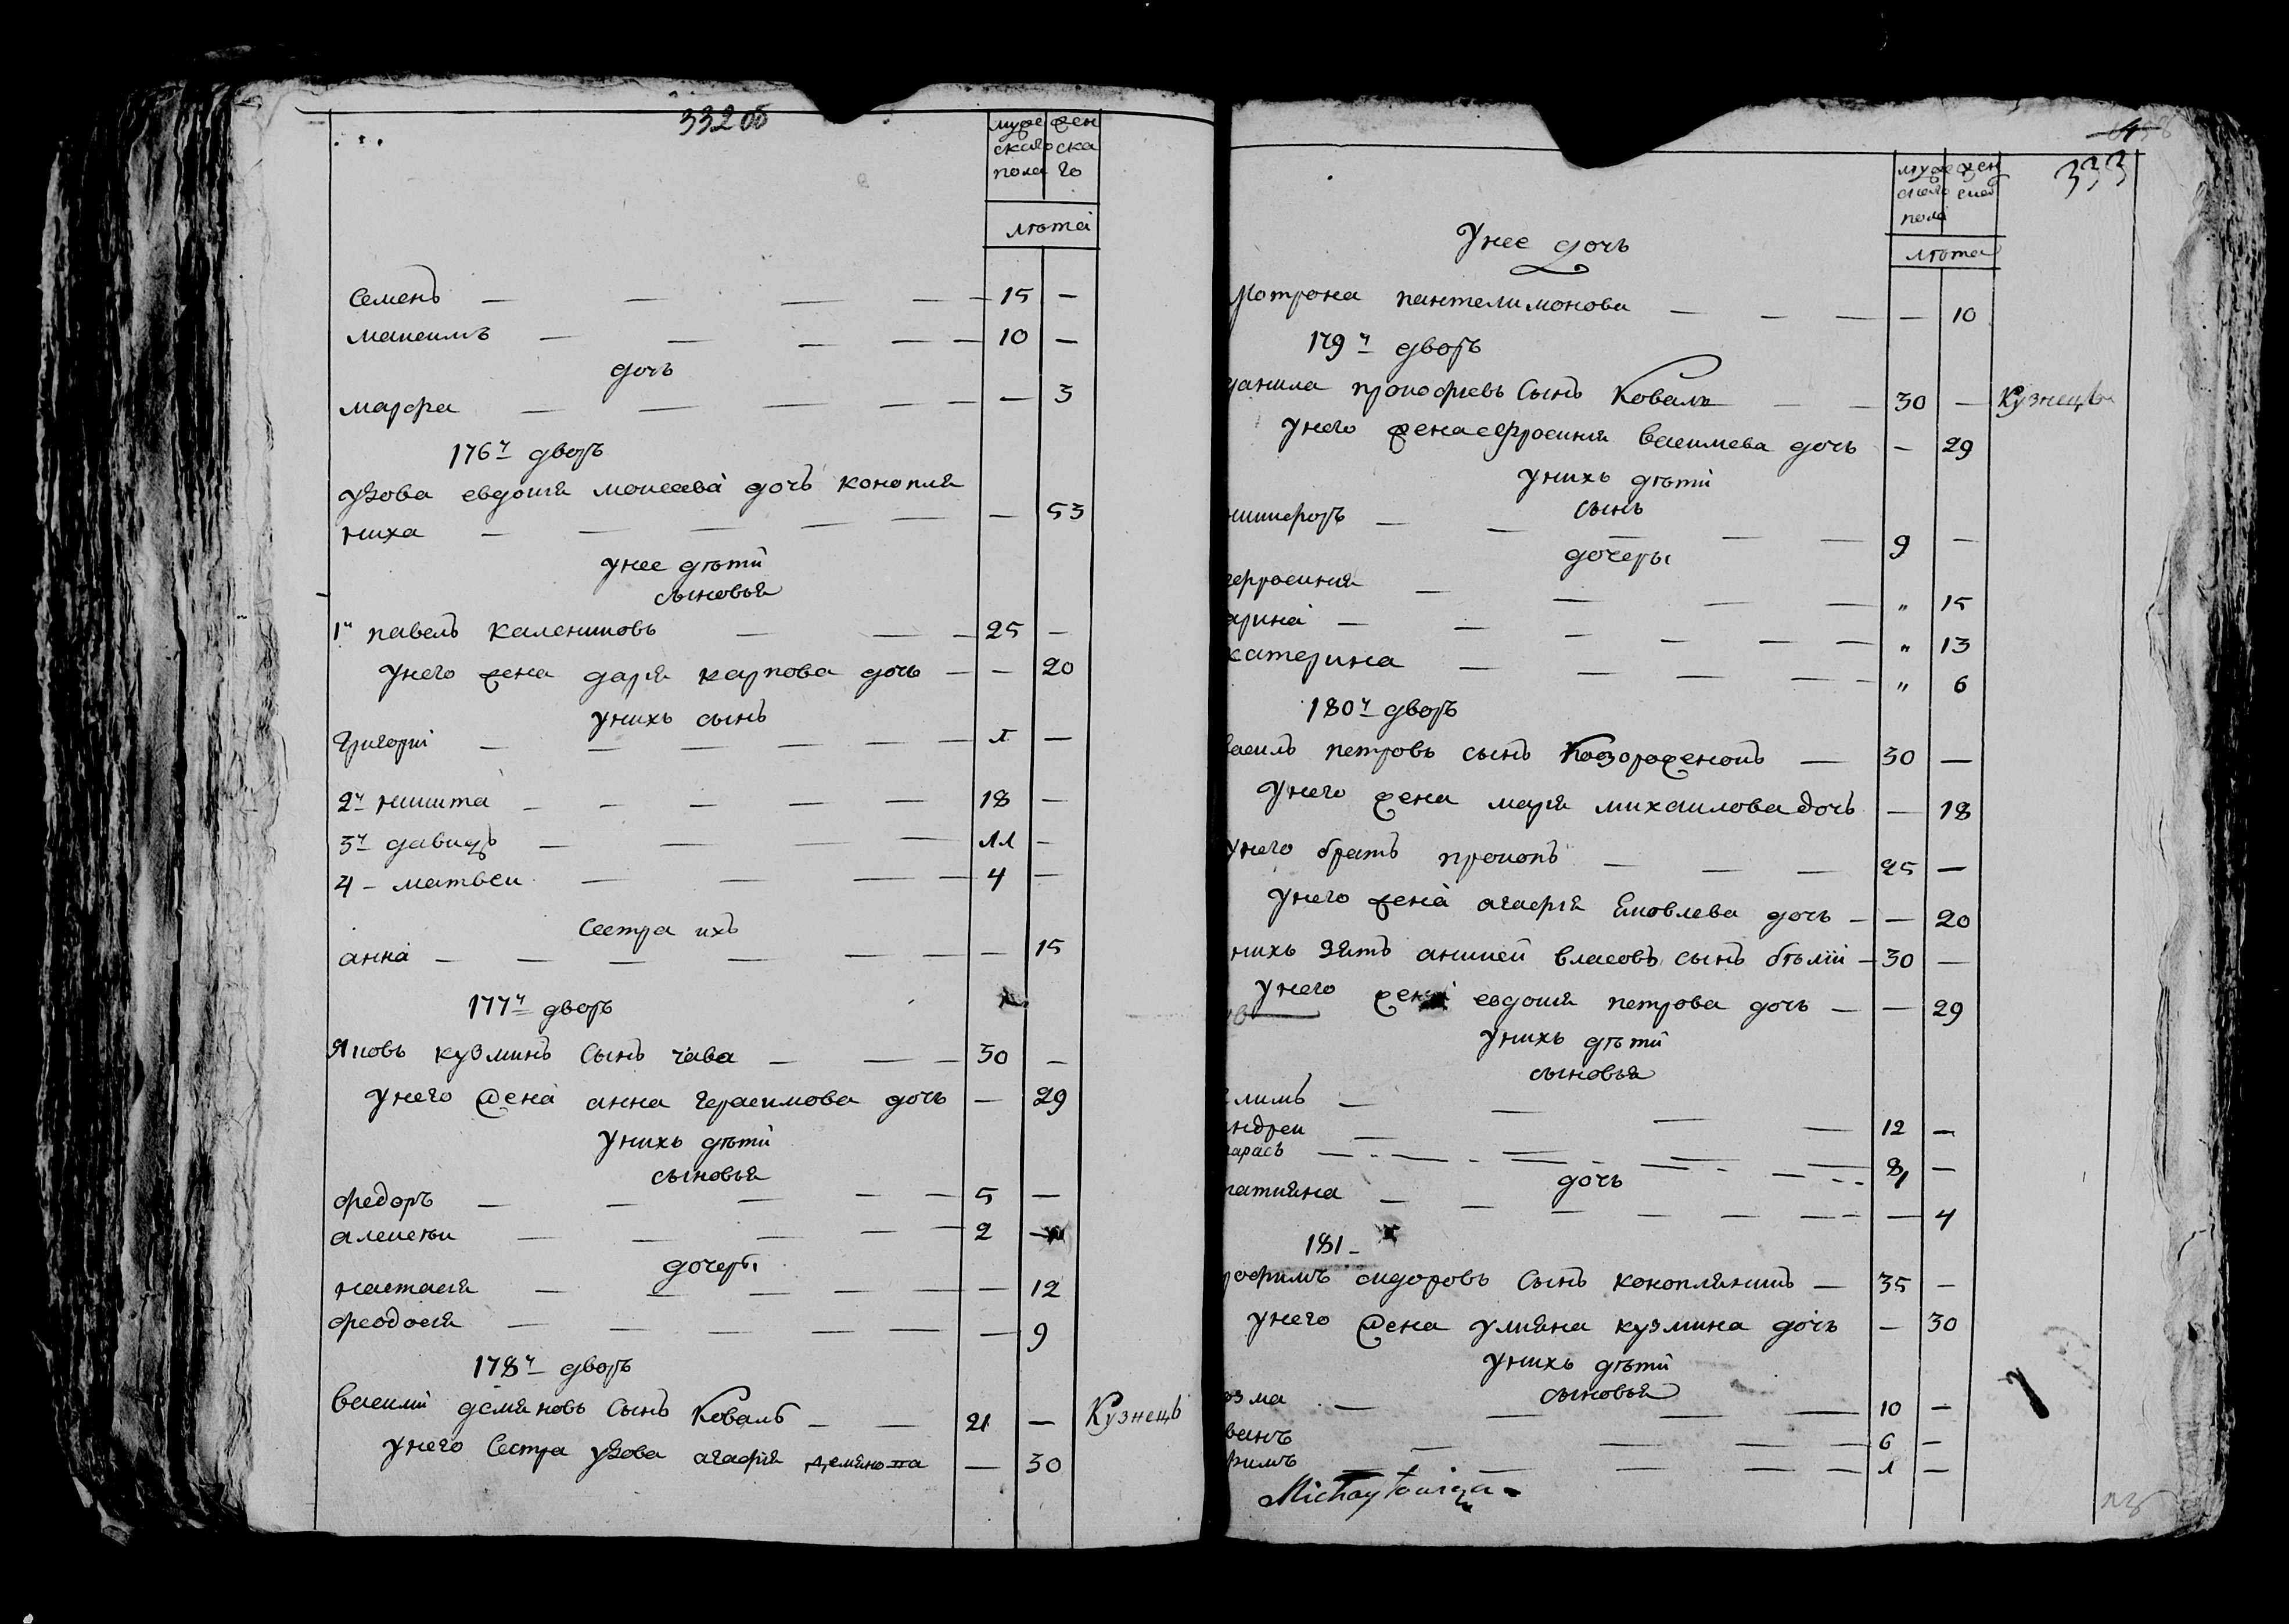 332 об
муже жен
скаго ска
пола го
лѣта
Семенъ — — — — 15 —
максимъ — — — — — 10 —
дочь
марфа — — — — — — 3
176й дворъ
удова евдокия моисеева дочь конопля
ниха — — — — — — 53
унее дѣти
сыновья
1й павелъ калениковъ — — — 25 —
унего жена даря карпова дочь — — 20
унихъ сынъ
Григорий — — — — — — 1 —
2й никита — — — — — 18 —
3й давидъ — — — — 11 —
4 – матвеи — — — — 4 —
Сестра ихъ
анна — — — — — — — 15
177й дворъ
Яковъ кузминъ Сынъ чава — — — 30 —
унего жена анна Герасимова дочь — 29
унихъ дѣти
сыновья
федоръ — — — — — 5 —
алексѣи — — — — — 2 —
дочеры
настасия — — — — — — — 12
феодосия — — — — — — 9
178й дворъ
василий демяновъ Сынъ Коваль — — 21 — Кузнецъ
унего Сестра удова агафия демянова — 30
333
муже жен
скаго ска
пола
лѣта
Унее дочь
Мотрона пантелимонова — — — — 10
179й дворъ
данила прокофиевъ Сынъ Коваль — — 30 — Кузнецъ
унего жена ефросиния василиева дочь — 29
унихъ дѣти
сынъ
никифоръ — — — — — 9 —
дочеры
ефросиния — — — — " 15
арина — — — — — — " 13
катерина — — — — — " 6
180й дворъ
василь петровъ сынъ Козороженокъ — 30 —
унего жена маря михаилова дочь — 18
унего братъ прокопъ — — — 25 —
унего жена агафия Яковлева дочь — — 20
нихъ зять аникей власовъ сынъ бѣлий — 30 —
унего жена евдокия петрова дочь — — 29
унихъ дѣти
сыновья
климъ — — — — 12 —
ндреи — — — — 8 —
арасъ — — — — 1
дочь
татияна — — — — — — — 4
181 –
рофимъ сидоровъ Сынъ конопляникъ — 35 —
унего жена улияна кузмина дочь — 30
унихъ дѣти
сыновья
озма — — — — 10 —
ванъ — — — 6 —
фимъ — — — — — 1 —